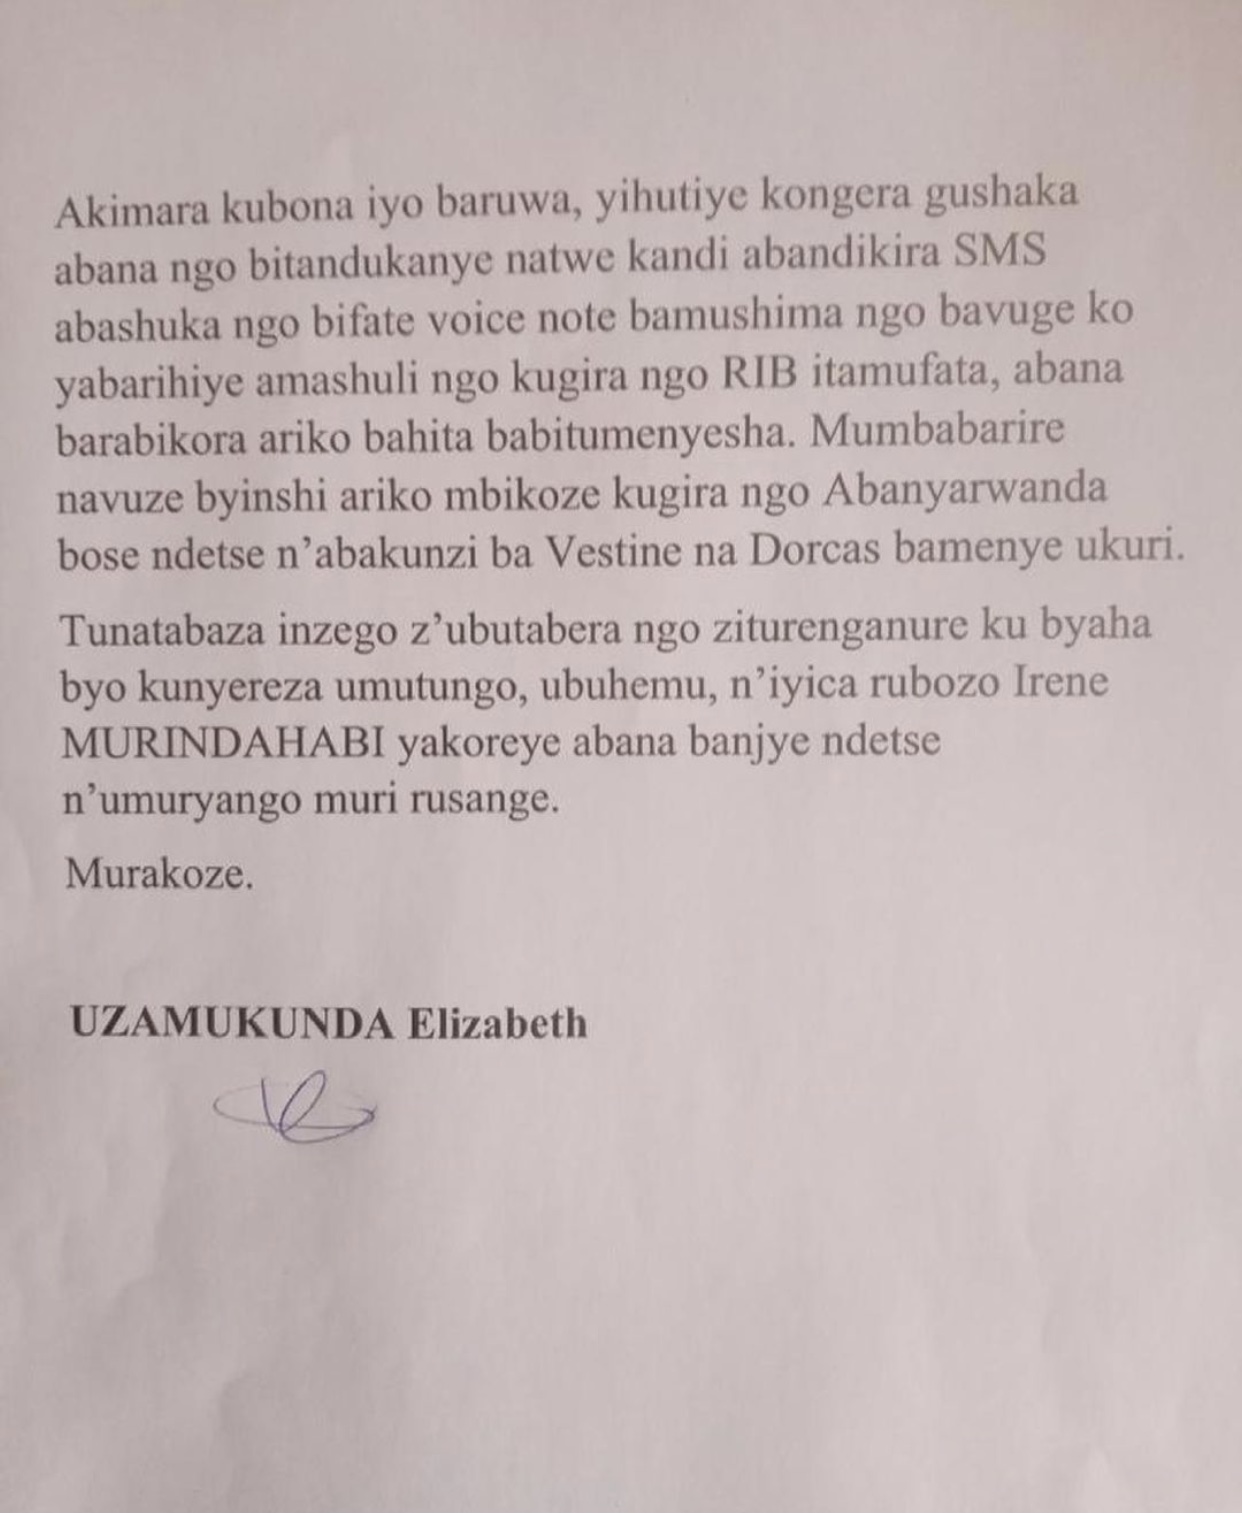 Akimara kubona iyo baruwa, yihutiye kongera gushaka
abana ngo bitandukanye natwe kandi abandikira SMS
abashuka ngo bifate voice note bamushima ngo bavuge ko
yabarihiye amashuli ngo kugira ngo RIB itamufata, abana
barabikora ariko bahita babitumenyesha. Mumbabarire
navuze byinshi ariko mbikoze kugira ngo Abanyarwanda
bose ndetse n’abakunzi ba Vestine na Dorcas bamenye ukuri.
Tunatabaza inzego z’ubutabera ngo ziturenganure ku byaha
byo kunyereza umutungo, ubuhemu, n’iyica rubozo Irene
MURINDAHABI yakoreye abana banjye ndetse
n’umuryango muri rusange.
Murakoze.
UZAMUKUNDA Elizabeth